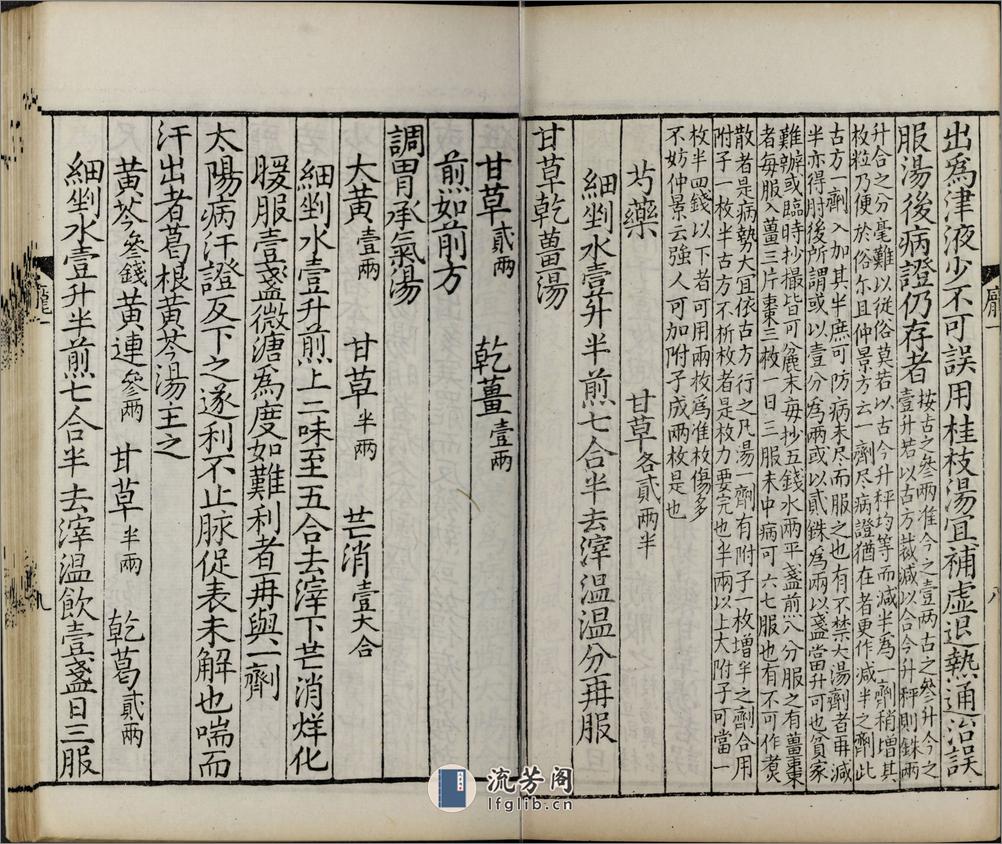 出爲津液少不可誤用桂枝湯宜補虛退熱通治誤
服湯後病證仍存者
按古之叄兩准今之壹兩古之叄升今之
壹升若以古方裁減以合今升秤則銖兩
升合之分毫難以從俗莫若以古今升秤均等而減半爲一劑稍增其
枚粒乃便於俗尓且仲景方云一劑尽病證猶在者更作減半之劑此
古方一劑一入加其半庶可防病未尽而服之也有不禁大湯劑者再減
半亦得肘後所謂或以壹分爲兩或以貳銖爲兩以盞當升可也貧家
難辦或臨時抄撮皆可麄末每抄五錢水兩平盞煎八分服之有薑棗
者每服入薑三片棗三枚一日三服未中病可六七服也有不可作煑
散者是病勢大宜依古方行之凡湯一劑有附子一枚增半之劑合用
附子一枚半古方不析枚者是枚力要完也半兩以上大附子可當一
枚半四錢以下者可用兩枚爲准枚傷多
不妨仲景云強人可加附子成兩枚是也
芍藥 甘草各貳兩半
細剉水壹升半煎七合半去滓温温分再服
甘草乾薑湯
甘草貳兩 乾薑壹兩
煎如前方
調胃承氣湯
大黄壹兩 甘草半兩 芒消壹大合
細剉水壹升煎上二味至五合去滓下芒消烊化
暖服壹盞微溏爲度如難利者再與一劑
太陽病汗證反下之遂利不止脉促表未解也喘而
汗出者葛根黄芩湯王之
黄芩叄錢黄連叄兩 甘草半兩 乾葛貳兩
細剉水壹升半煎七合半去滓温飲壹盞日三服
龎一
八
龎一
九
流芳阁
lfglib.cn